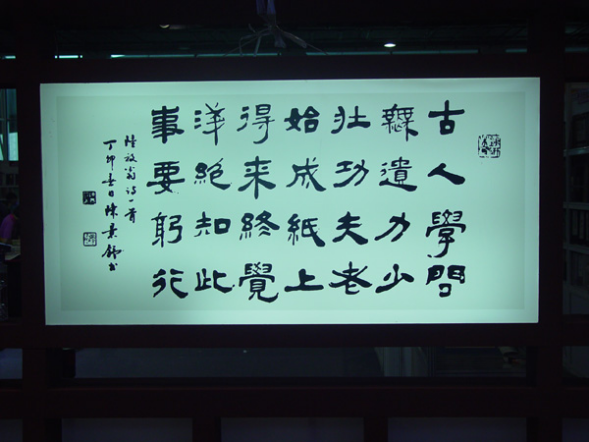 古人學問
無遺力少
壯功夫老
始成紙上
得来終覺
浅絕知此
事要躬行
陸放翁詩一首
丁卯春日陳景舒書